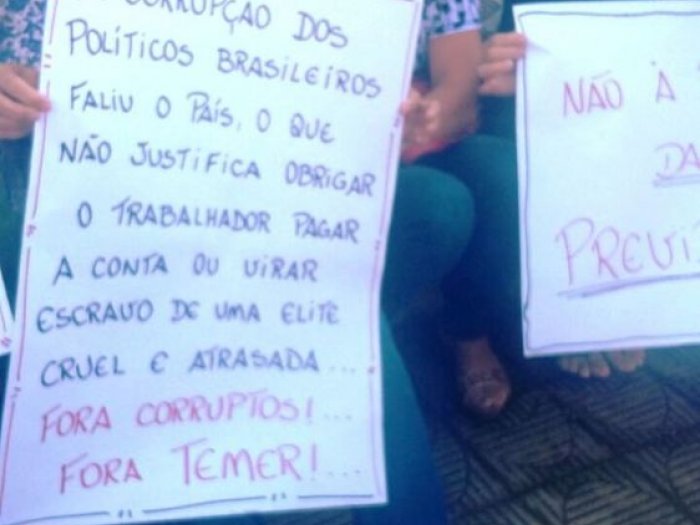 CORRUPÇÃO DOS
POLÍTICOS BRASILEIROS
FALIU O PAÍS, O QUE
NÃO JUSTIFICA OBRIGAR
O TRABALHADOR PAGAR
A CONTA OU VIRAR
ESCRAVO DE UMA ELITE
CRUEL E ATRASADA...
FORA CORRUPTOS!...
FORA TEMER!....
NÃO À
DA